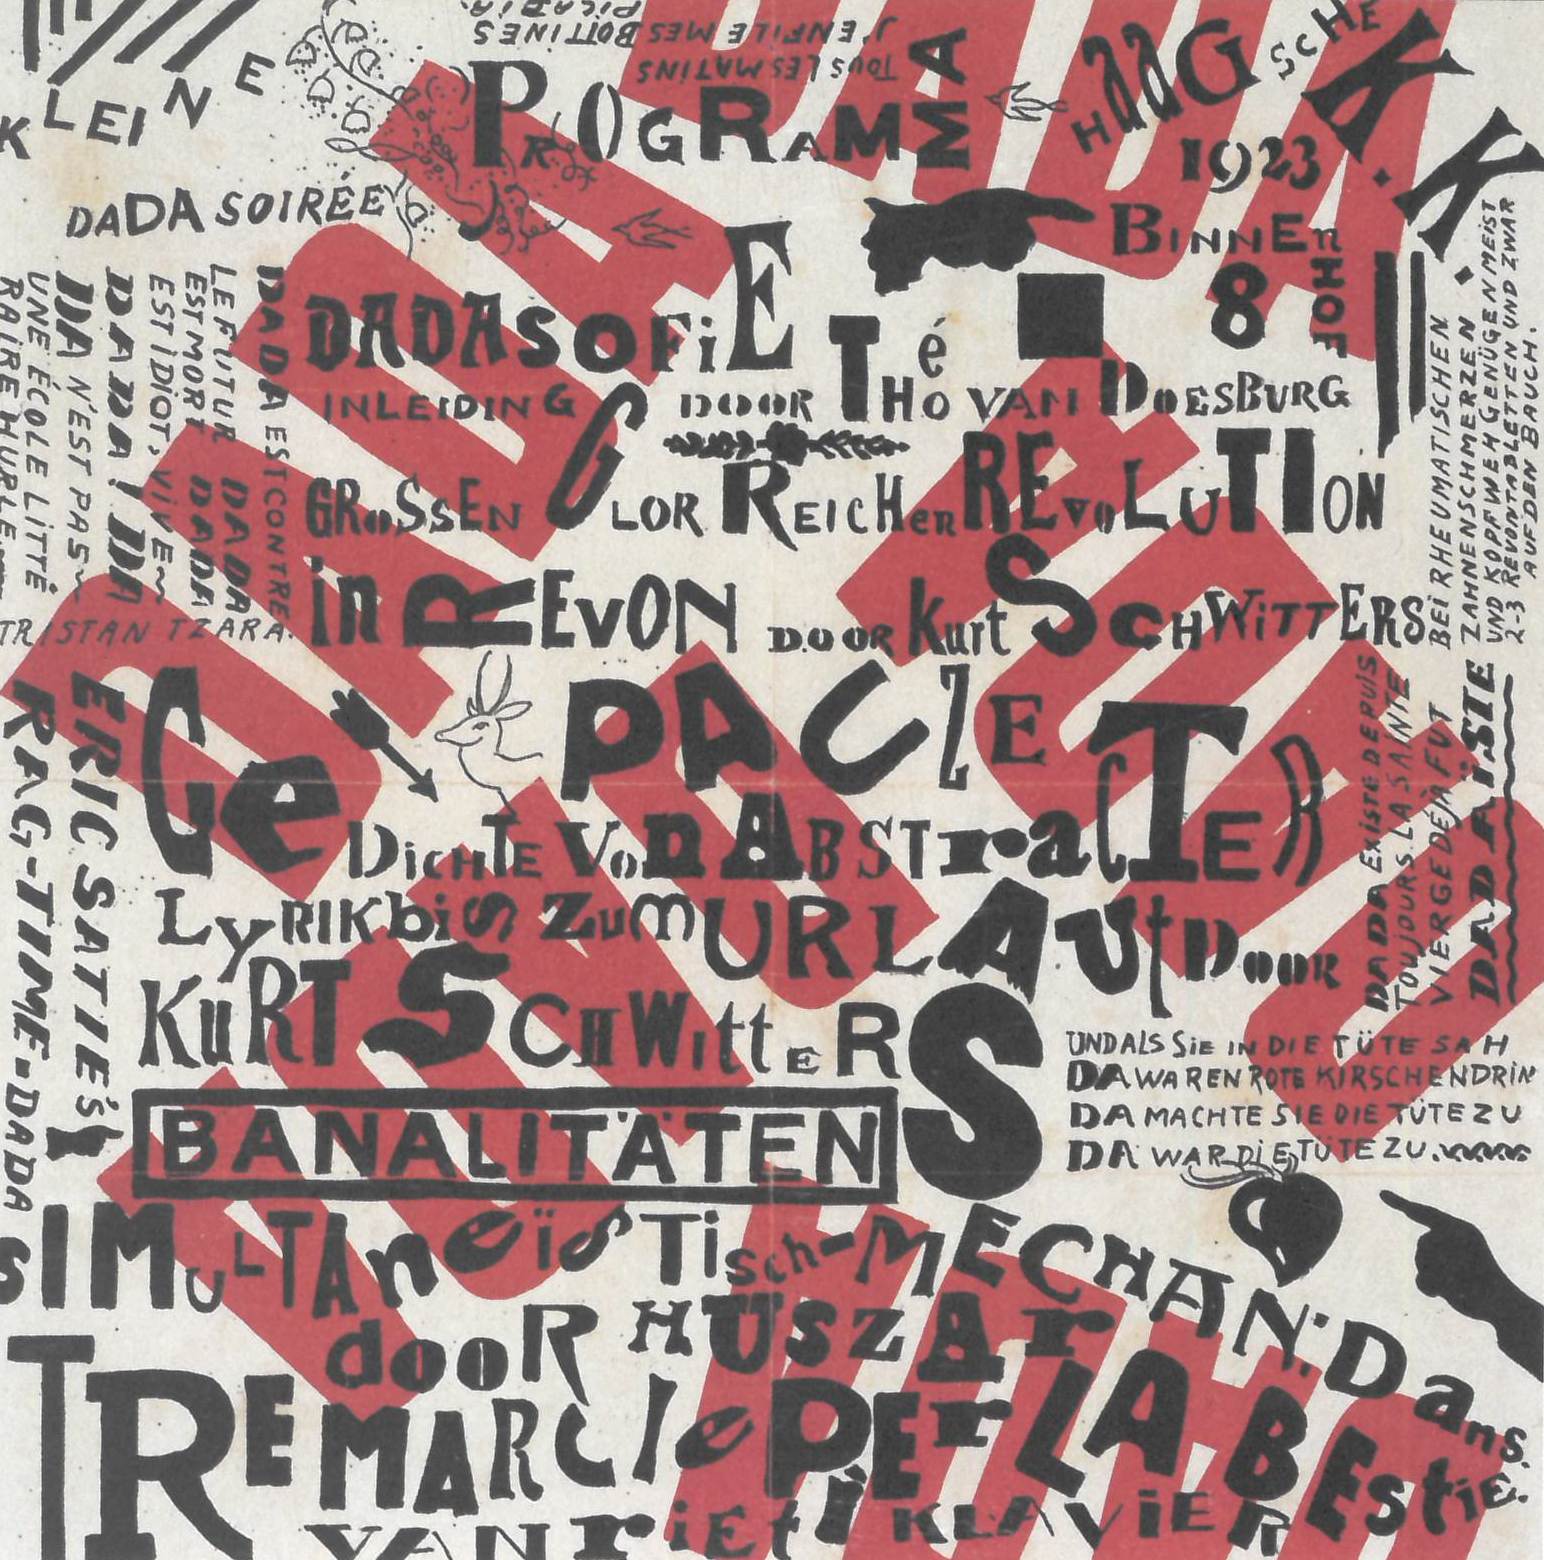 KLEINE
DADA SOIRÉE
PICABIA.
J'ENFILE MES BOTTINES
TOUS LES MATINS
PROGRAMMA
HAAGSCHE K.K.
1923
BINNENHOF 8
DADASOFIE
INLEIDING DOOR Théo VAN DOESBURG
GROSSEN GLORREICHEN REVOLUTION
in REVON DOOR Kurt SCHWITTERS
GePACZE
GeDICHTE VON ABSTracTER
LyRIK bis ZUM URLAUt DOOR
KURT SCHWittERS
BANALITÄTEN
SIMULTANeïSTisch-MECHAN. Dans.
dooR HUSZAr
TREMARCIe PEr LA BEstie.
VAN riEti KLAViER
DADA EST CONTRE
LE FUTUR DADA
EST MORT DADA
EST IDIOT, VIVE
DADA! DA
DA N'EST PAS
UNE ÉCOLE LITTÉ
RAIRE HURLE
TRISTAN TZARA.
ERIC SATIE'S
RAG-TIME-DADA
BEI RHEUMATISCHEN
ZAHNENSCHMERZEN
UND KOPFWEH GENÜGEN MEIST
2-3 REVONTABLETTEN UND ZWAR
AUF DEN BAUCH.
DADA EXISTE DEPUIS
TOUJOURS. LA SAINTE
VIERGE DÉJÀ FUT
DADAÏSTE
UND ALS SIE IN DIE TÜTE SAH
DA WAREN ROTE KIRSCHEN DRIN
DA MACHTE SIE DIE TÜTE ZU
DA WAR DIE TÜTE ZU.